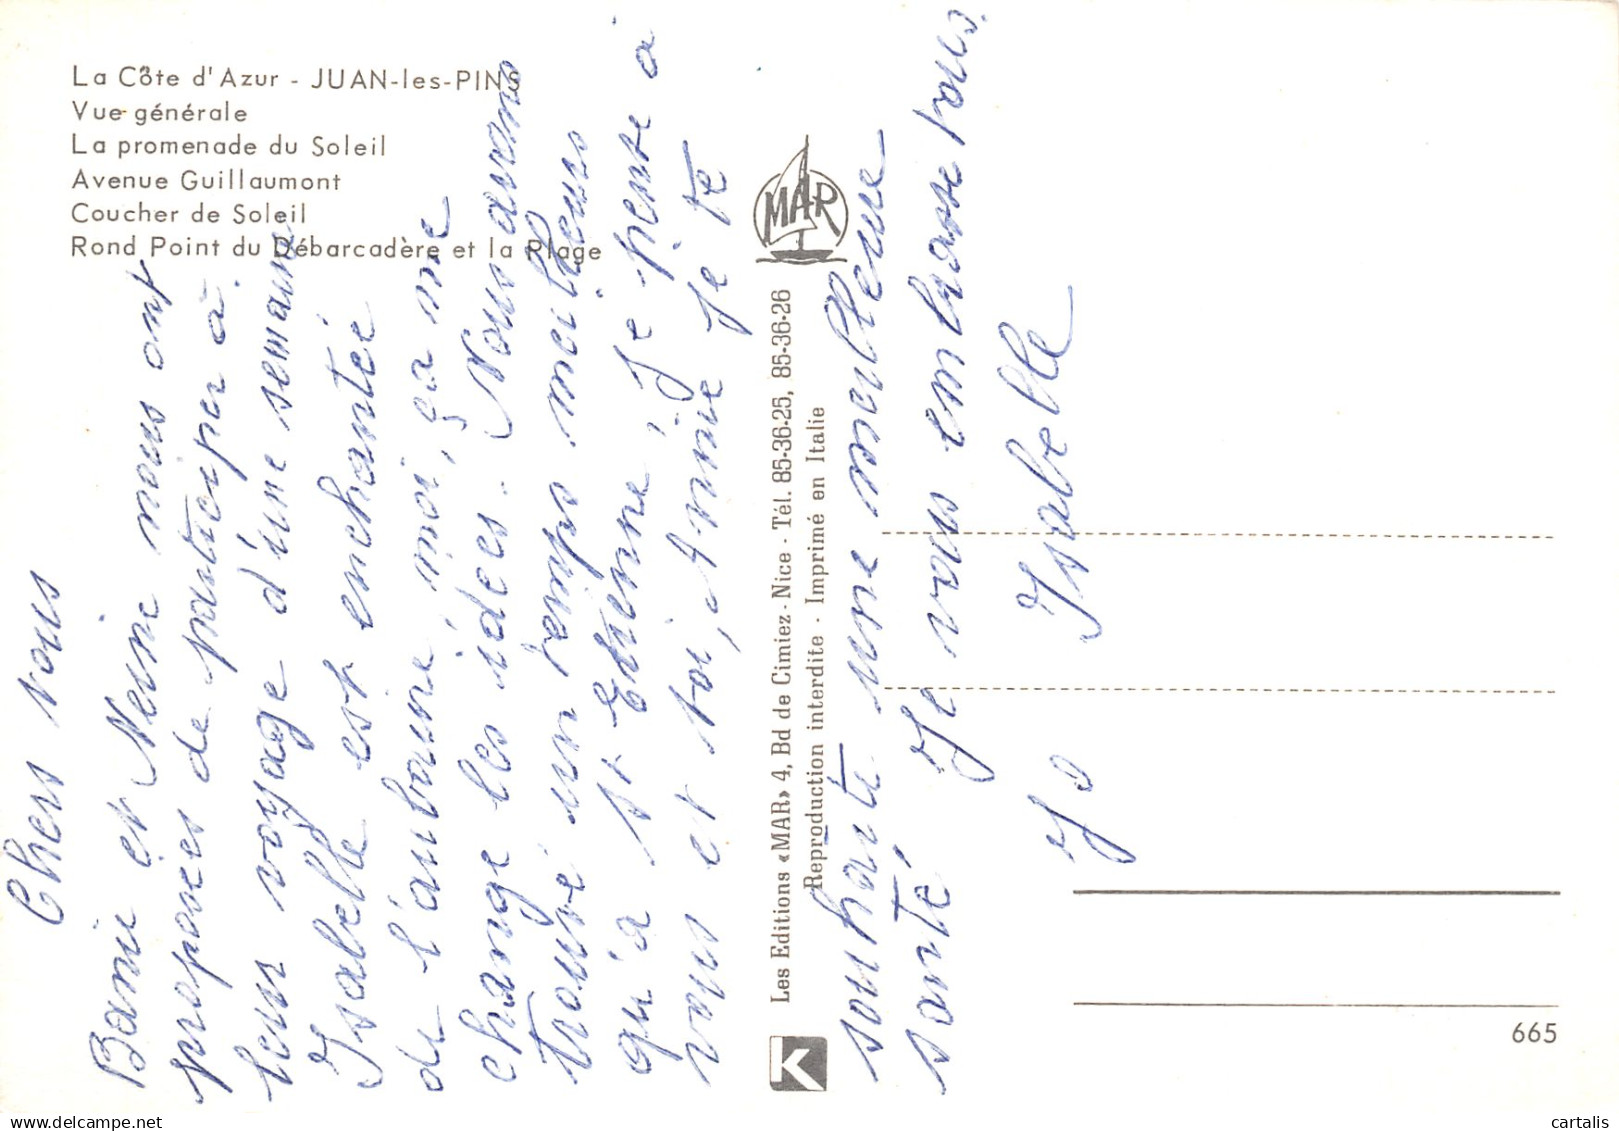 La Côte d'Azur - JUAN-les-PINS
Vue générale
La promenade du Soleil
Avenue Guillaumont
Coucher de Soleil
Rond Point du Débarcadère et la Plage
MAR
Les Editions «MAR» 4, Bd de Cimiez - Nice - Tél. 85-36-25, 85-36-26
Reproduction interdite - Imprimé en Italie
K
665
Chers vous
et nous ont
proposées de participer à
leur voyage d'une semaine
Isabelle est enchantée
de l'aubaine, moi, ça me
change les idées. Nous avons
trouvé un temps meilleur
qu'à St Etienne, Je pense à
vous et toi, Annie je te
souhaite une meilleure
santé Je vous embrasse tous
Isabelle
delcampe.net
cartalis